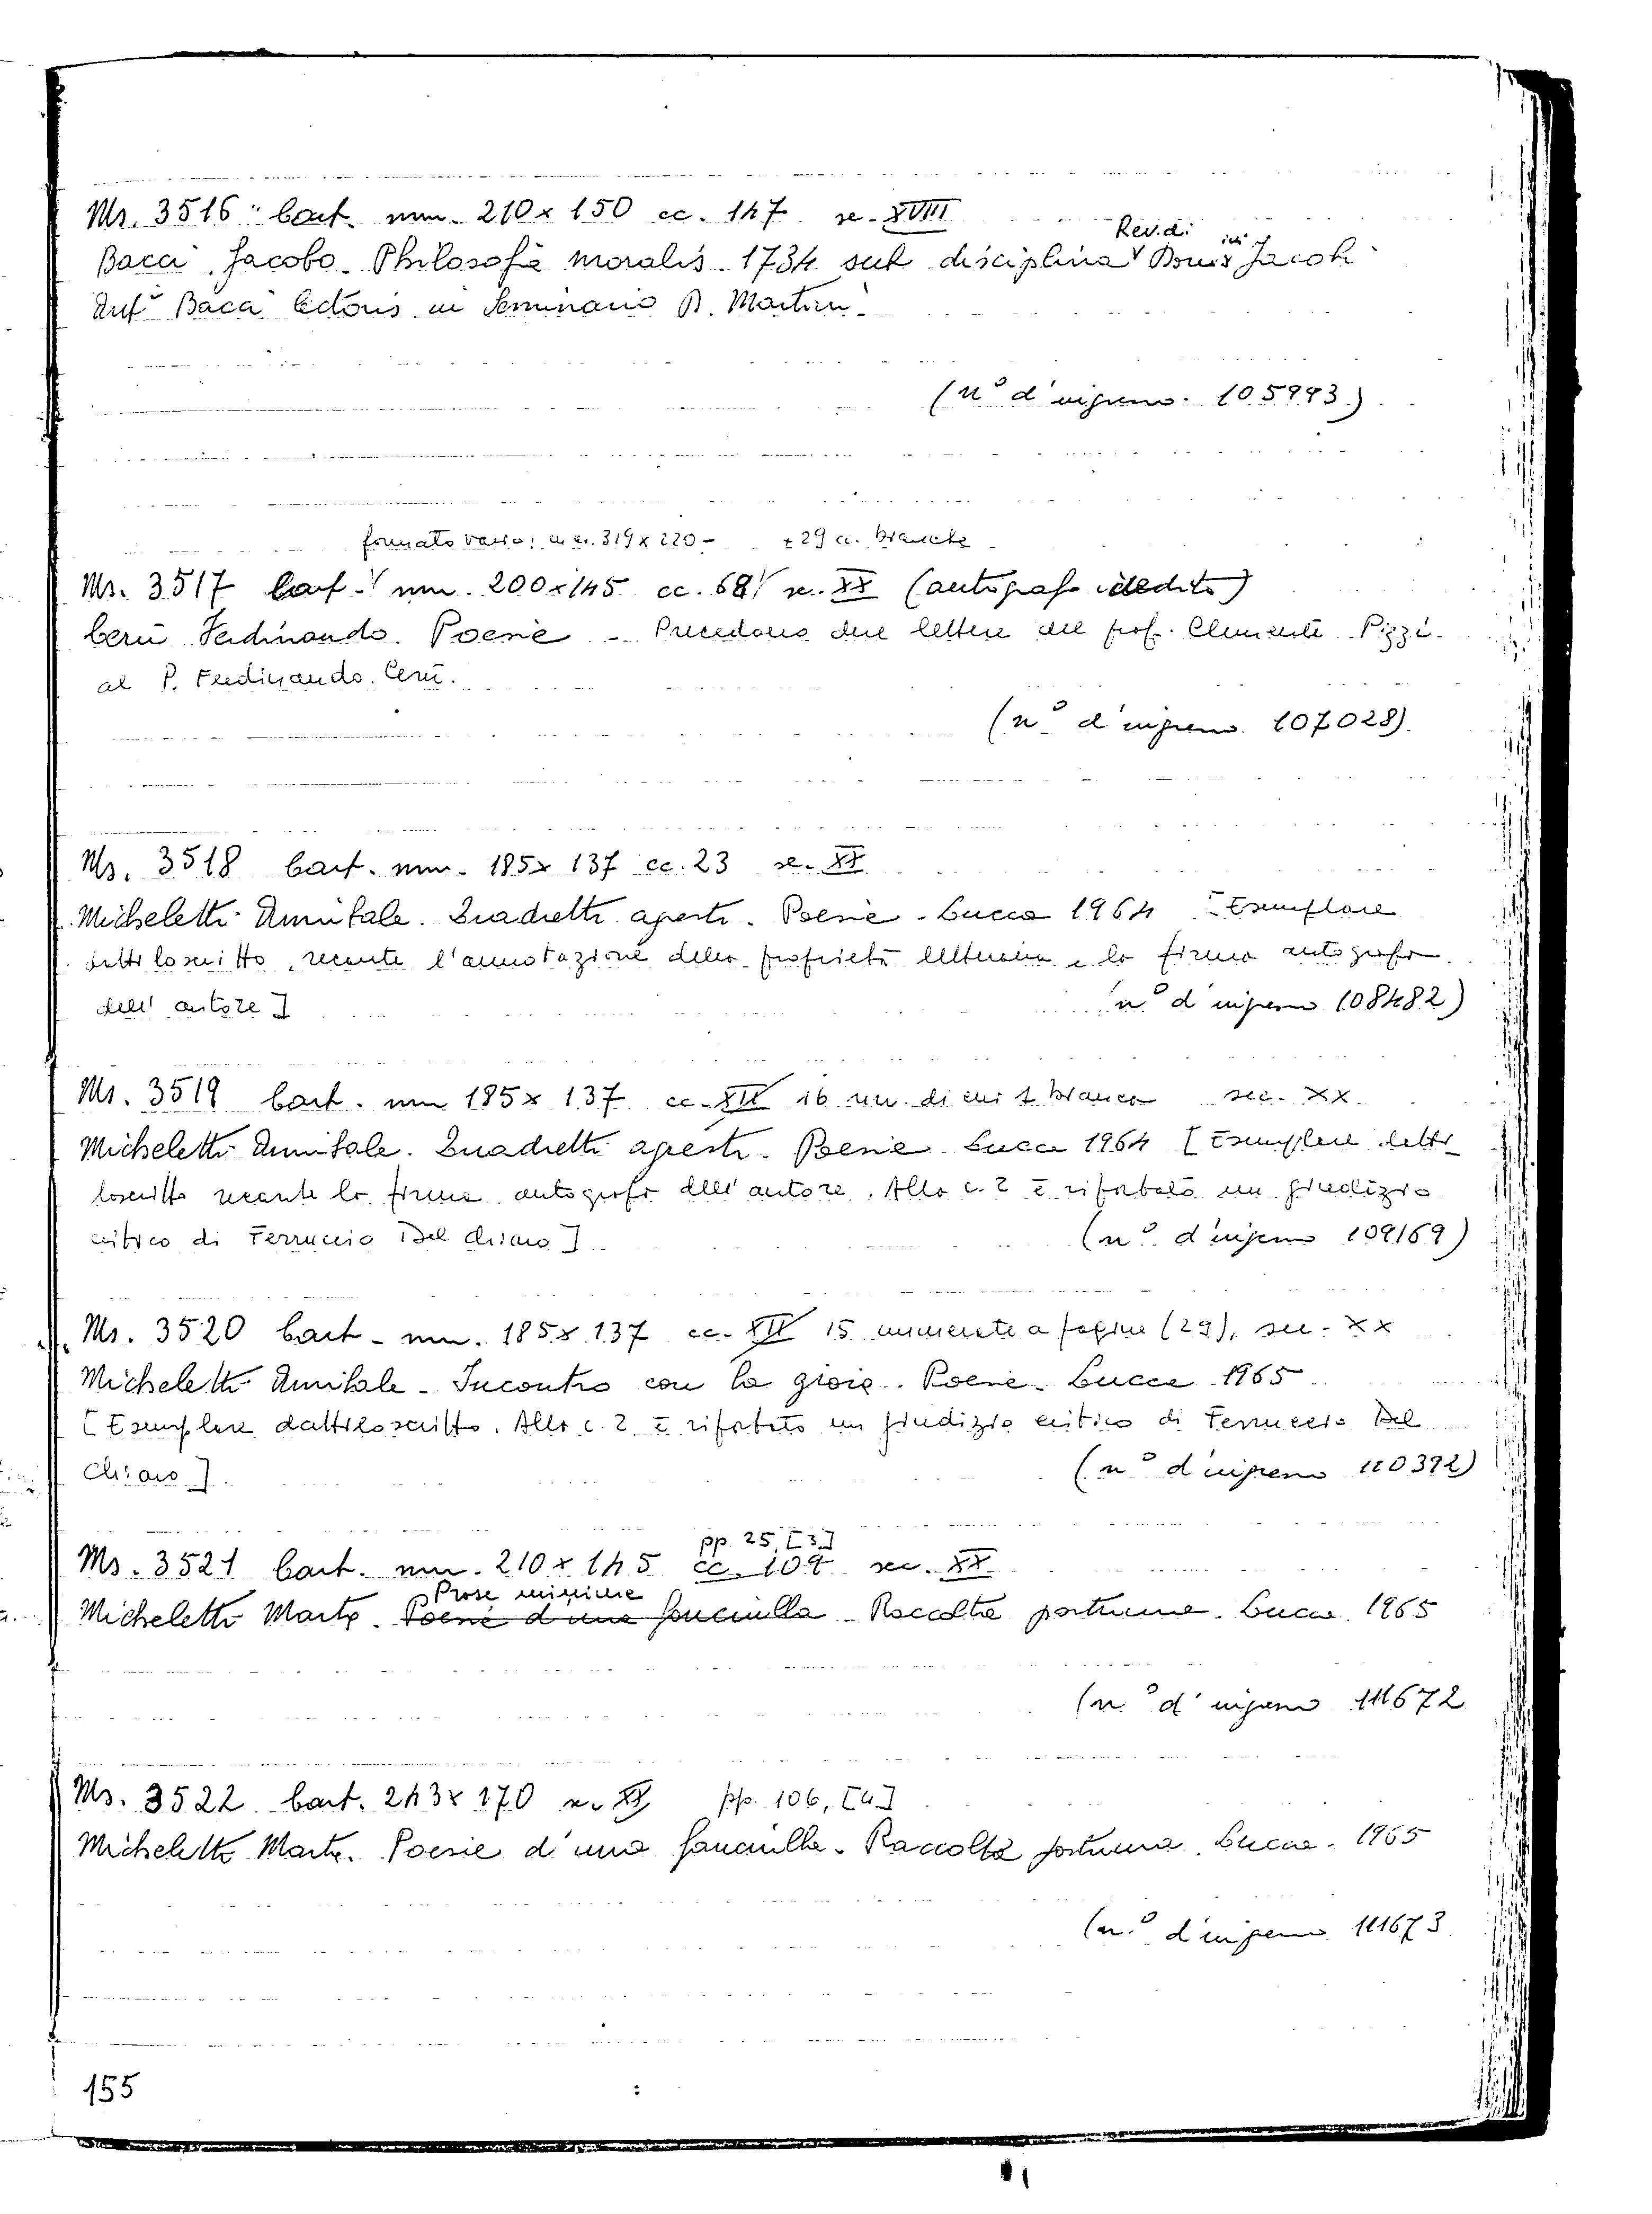 Ms. 3516 Cart. mm. 210 x 150 cc. 147 se. XVIII
Rev.di
Bacci Jacobo. Philosofia moralis. 1734 sub disciplina Jacobi
Ant. Bacci lectoris in Seminario B. Martini
(n° d'ingresso. 105993)
formato vario: 319 x 220 - + 29 cc. bianche
Ms. 3517 Cart. mm. 200 x 145 cc. 68 se. XX (autografo inedito)
Cerù Ferdinando. Poesie - Precedono due lettere del prof. Clemente Pizzi
al P. Ferdinando Cerù.
(n° d'ingresso 107028)
Ms. 3518 Cart. mm. 185 x 137 cc. 23 se. XX
Micheletti Annibale. Quadretti agresti. Poesie - Lucca 1964 [Esemplare
dattiloscritto, recante l'annotazione della proprietà letteraria e la firma autografa
dell'autore]
n° d'ingresso 108482)
Ms. 3519 Cart. mm 185 x 137 cc. XII 16 nn. di cui 1 bianca sec. XX.
Micheletti Annibale. Quadretti agresti. Poesie Lucca 1964 [Esemplare datti-
loscritto recante la firma autografa dell'autore. Alla c. 2 è riportato un giudizio
critico di Ferruccio Del Chiaro]
(n° d'ingresso 109169)
Ms. 3520 Cart - mm. 185 x 137 cc. XII 15 numerate a pagine (29), sec. XX
Micheletti Annibale - Incontro con la gioia. Poesie. Lucca 1965
[Esemplare dattiloscritto. Alla c. 2 è riportato un giudizio critico di Ferruccio Del
Chiaro].
(n° d'ingresso 110392)
pp. 25, [3]
Ms. 3521 Cart. mm. 210 x 145 cc. 107 sec. XX.
Prose minime
Micheletti Marta. Poesie d'una fanciulla - Raccolta postuma. Lucca. 1965
(n.° d'ingresso 111672
Ms. 3522 Cart. 243 x 170 se. XX pp. 106, [4]
Micheletti Marta. Poesie d'una fanciulla. Raccolta postuma. Lucca. 1965
(n.° d'ingresso 111673
155